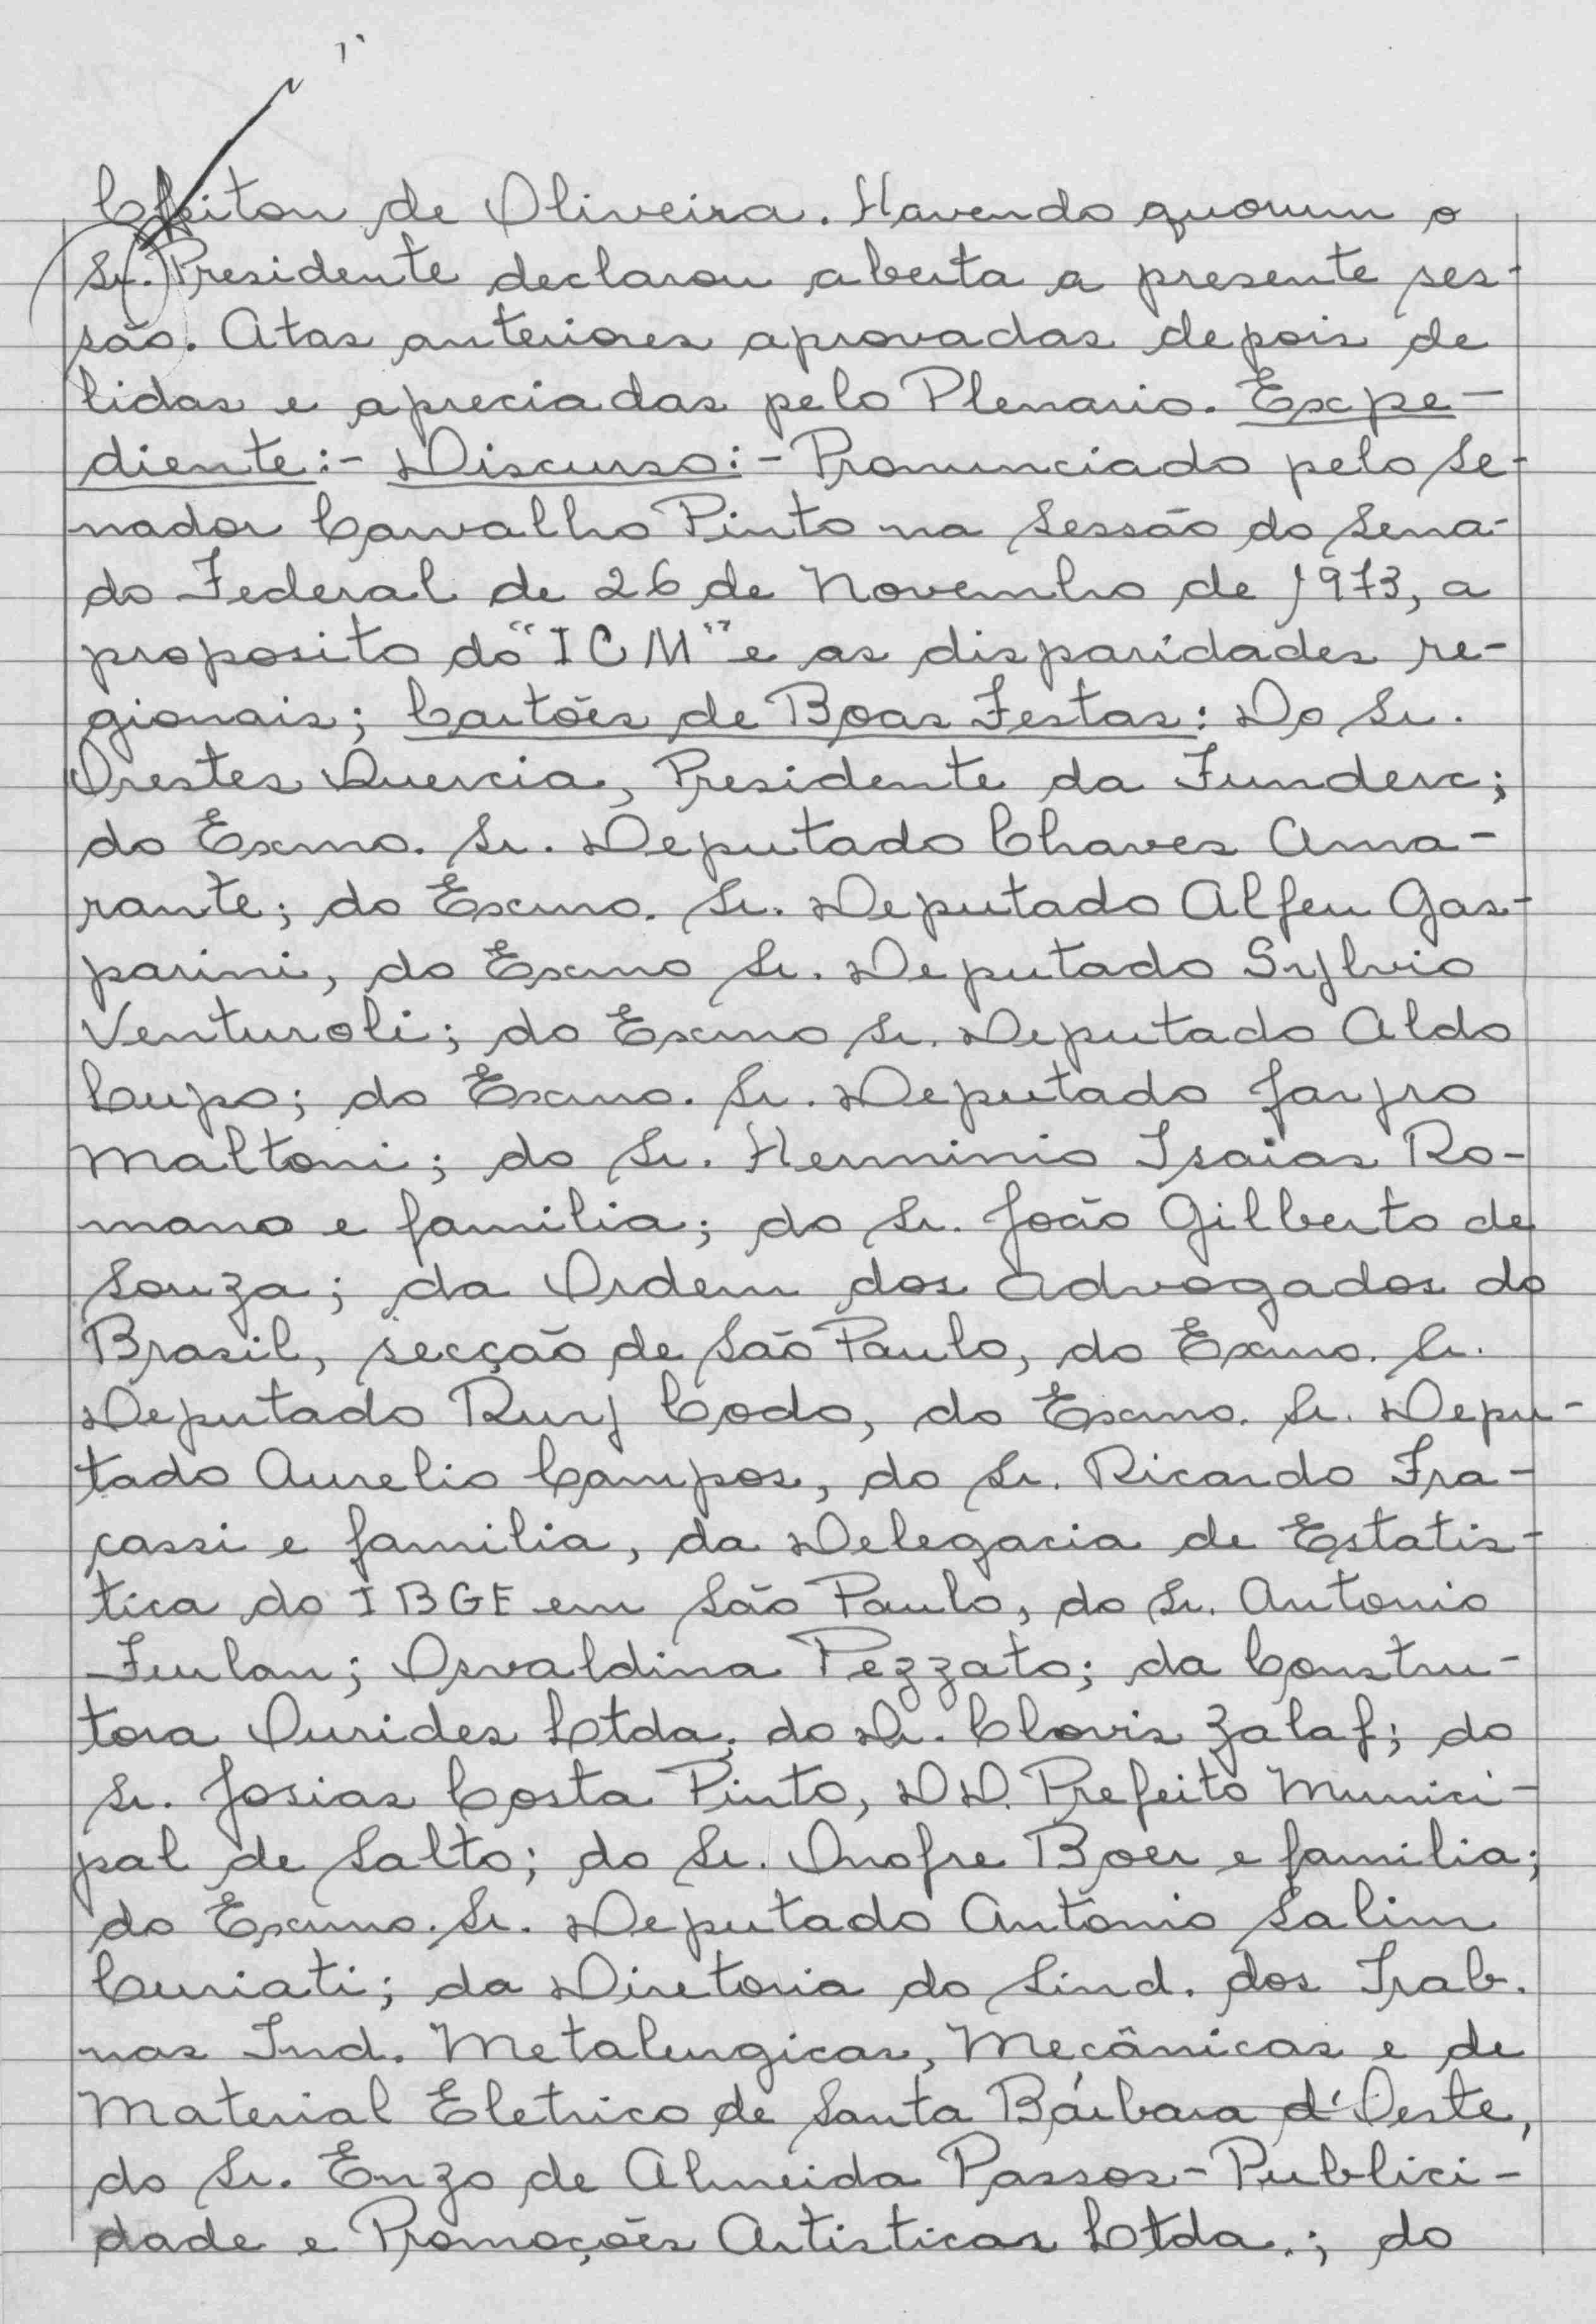 Cleiton de Oliveira. Havendo quorum o
Sr. Presidente declarou aberta a presente ses-
são. Atas anteriores aprovadas depois de
lidas e apreciadas pelo Plenario. Expe-
diente:- Discurso:- Pronunciado pelo Se-
nador Carvalho Pinto na Sessão do Sena-
do Federal de 26 de Novembro de 1973, a
proposito do "ICM" e as disparidades re-
gionais; Cartões de Boas Festas: Do Sr.
Orestes Quercia, Presidente da Funderc;
do Exmo. Sr. Deputado Chaves Ama-
rante; do Exmo. Sr. Deputado Alfeu Gas-
parini, do Exmo Sr. Deputado Sylvio
Venturoli; do Exmo Sr. Deputado Aldo
Lupo; do Exmo. Sr. Deputado Jayro
Maltoni; do Sr. Herminio Isaias Ro-
mano e familia; do Sr. João Gilberto de
Souza; da Ordem dos Advogados do
Brasil, secção de São Paulo, do Exmo. Sr.
Deputado Ruy Codo, do Exmo. Sr. Depu-
tado Aurelio Campos, do Sr. Ricardo Fra-
cassi e familia, da Delegacia de Estatis-
tica do IBGE em São Paulo, do Sr. Antonio
Furlan; Osvaldina Pezzato; da Constru-
tora Ourides Ltda; do Dr. Clovis Zalaf; do
Sr. Josias Costa Pinto, DD. Prefeito Munici-
pal de Salto; do Sr. Onofre Boer e familia;
do Exmo. Sr. Deputado Antonio Salim
Curiati; da Diretoria do Sind. dos Trab.
nas Ind. Metalurgicas, Mecânicas e de
Material Eletrico de Santa Bárbara d'Oeste,
do Sr. Enzo de Almeida Passos - Publici-
dade e Promoções Artisticas Ltda.; do